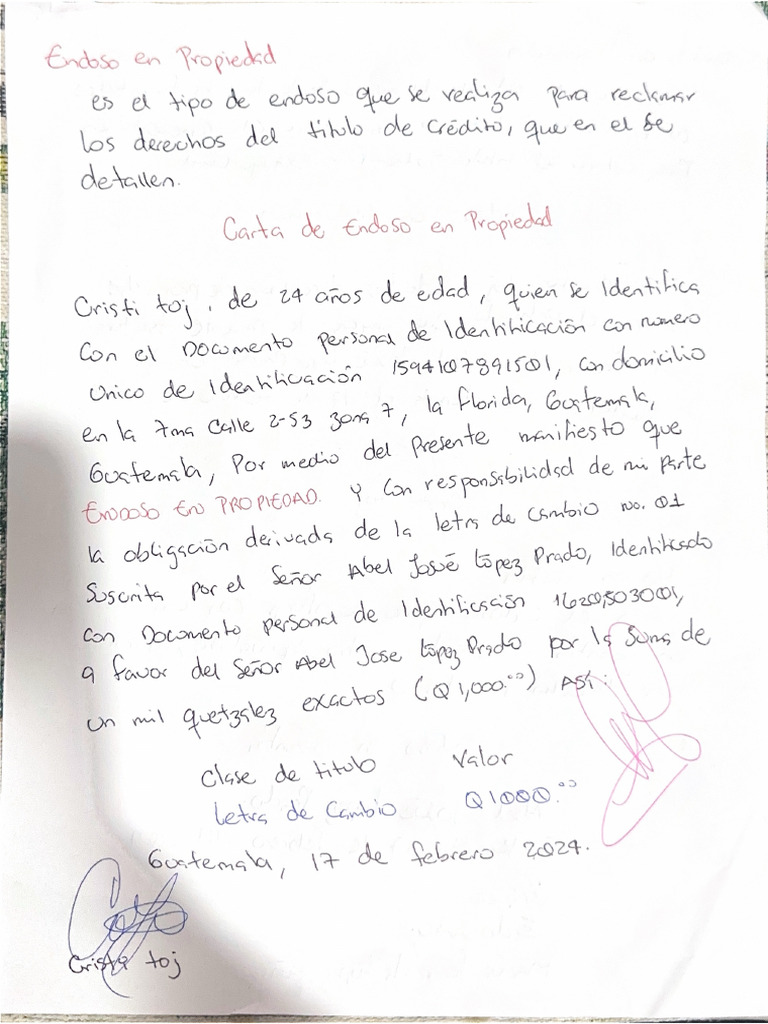 Endoso en Propiedad
es el tipo de endoso que se realiza para reclamar
los derechos del titulo de crédito, que en el se
detallen.
Carta de Endoso en Propiedad
Cristi toj, de 24 años de edad, quien se Identifica
Con el Documento Personal de Identificación con numero
Unico de Identificación 1594107891501, con domicilio
en la 7ma Calle 2-53 zona 7, la Florida, Guatemala,
Guatemala, Por medio del Presente manifiesto que
ENDOSO EN PROPIEDAD. Y con responsabilidad de mi parte
la obligación derivada de la letra de cambio no. 01
Suscrita por el Señor Abel Josué López Prado, Identificado
con Documento personal de Identificación
a favor del Señor Abel Jose López Prado por la suma de
un mil quetzalez exactos (Q1,000.00) Así:
Clase de titulo Valor
Letra de Cambio Q1000.00
Guatemala, 17 de febrero 2024.
Cristi toj